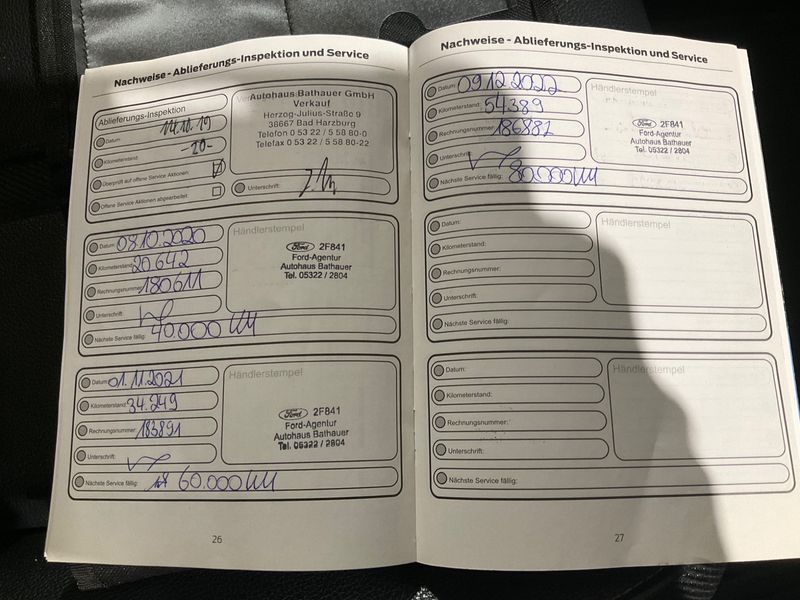 Nachweise - Ablieferungs-Inspektion und Service
Ablieferungs-Inspektion
Datum: 14.10.19
Kilometerstand: -20-
Überprüft auf offene Service Aktionen:
Offene Service Aktionen abgearbeitet:
Autohaus Bathauer GmbH
Verkauf
Herzog-Julius-Straße 9
38667 Bad Harzburg
Telefon 0 53 22 / 5 58 80-0
Telefax 0 53 22 / 5 58 80-22
Unterschrift:
Datum: 08.10.2020
Kilometerstand: 20642
Rechnungsnummer: 180611
Unterschrift:
Nächste Service fällig: 40.000 KM
Händlerstempel
Ford 2F841
Ford-Agentur
Autohaus Bathauer
Tel. 05322 / 2804
Datum: 01.11.2021
Kilometerstand: 34.249
Rechnungsnummer: 183891
Unterschrift:
Nächste Service fällig: 60.000 KM
Händlerstempel
Ford 2F841
Ford-Agentur
Autohaus Bathauer
Tel. 05322 / 2804
26
Nachweise - Ablieferungs-Inspektion und Service
Datum: 09.12.2022
Kilometerstand: 54.389
Rechnungsnummer: 186881
Unterschrift:
Nächste Service fällig: 80.000 KM
Händlerstempel
Ford 2F841
Ford-Agentur
Autohaus Bathauer
Tel. 05322 / 2804
Datum:
Kilometerstand:
Rechnungsnummer:
Unterschrift:
Nächste Service fällig:
Händlerstempel
Datum:
Kilometerstand:
Rechnungsnummer:
Unterschrift:
Nächste Service fällig:
Händlerstempel
27